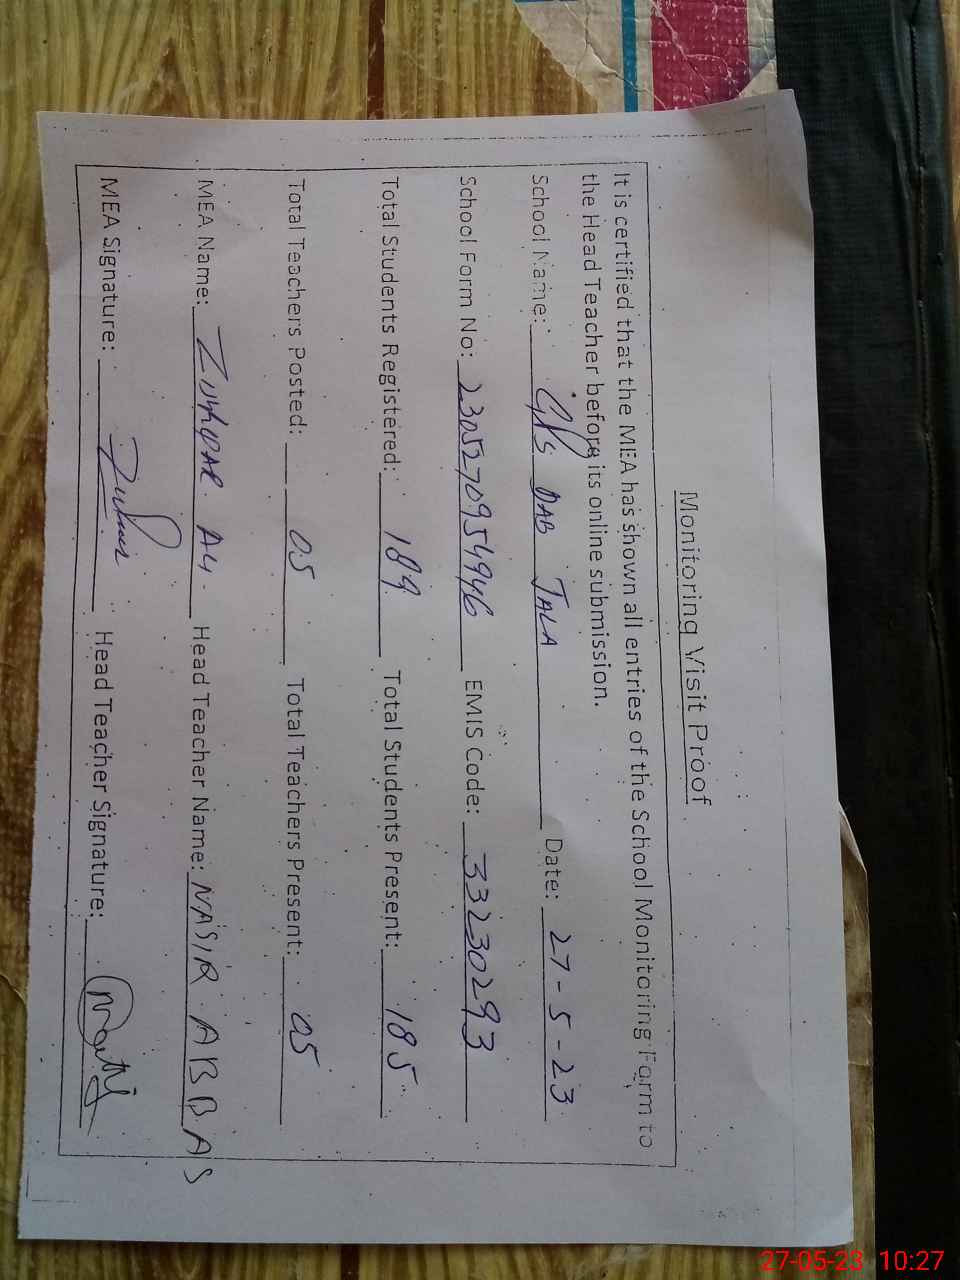 Monitoring Visit Proof
It is certified that the MEA has shown all entries of the School Monitoring Form to
the Head Teacher before its online submission.
School Name: GPS DAB JALA Date: 27-5-23
School Form No: 2305270954946 EMIS Code: 33230293
Total Students Registered: 189 Total Students Present: 185
Total Teachers Posted: 05 Total Teachers Present: 05
MEA Name: ZULFQAR ALI Head Teacher Name: NASIR ABBAS
MEA Signature: Head Teacher Signature:
27-05-23 10:27